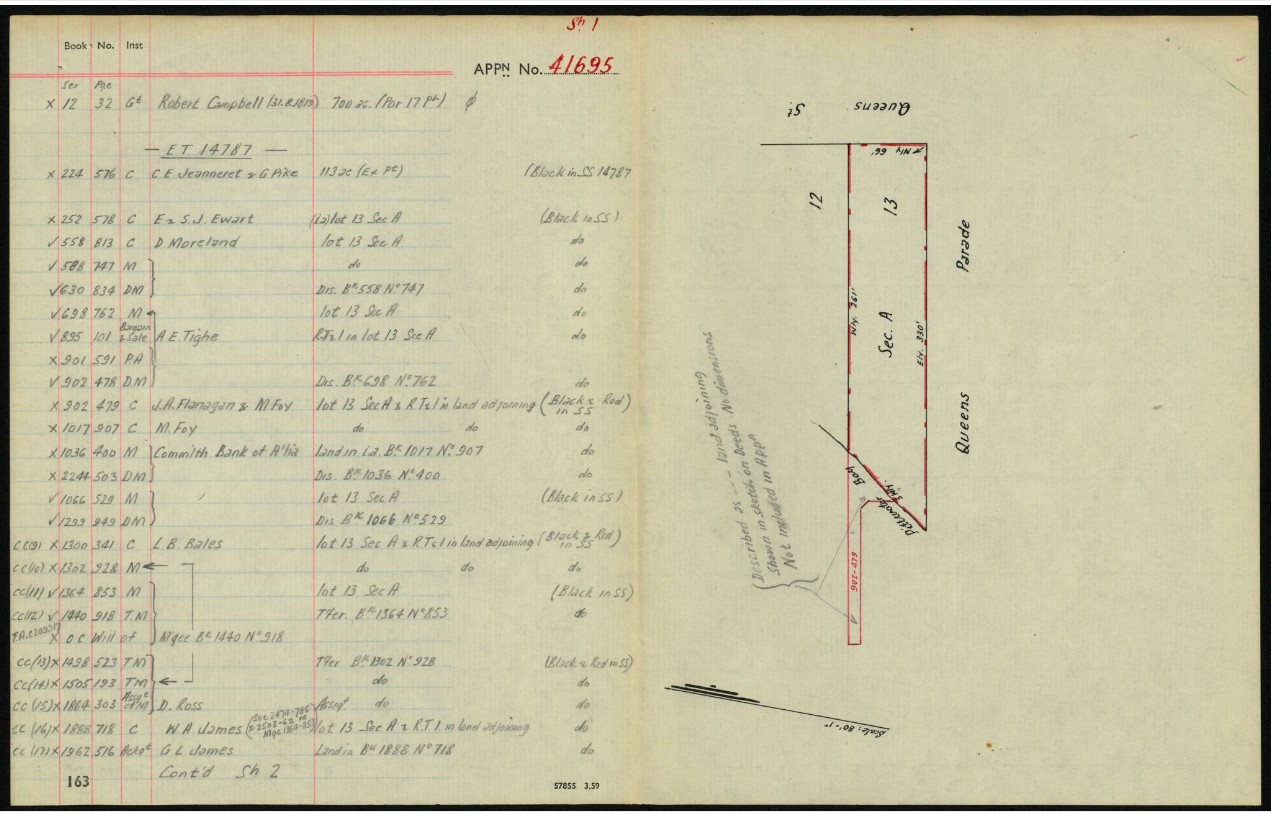 Sh 1
Book No. Inst
APPN No. 41695
Ser Pge
X 12 32 Gt Robert Campbell (31.8.1819) 700 ac. (Por 17 Pt) ϕ
— E.T. 14787 —
X 224 576 C C.E. Jeanneret & G Pike 113 ac (Ex pt) (Black in SS 14787
X 252 578 C E & S.J. Ewart (ia) lot 13 Sec A (Black in SS)
✓ 558 813 C D Moreland lot 13 Sec A do
✓ 588 747 M do do
✓ 630 834 DM Dis. Bk 558 No 747 do
✓ 698 762 M lot 13 Sec A do
✓ 895 101 Bargain & Sale A E. Tighe R.T & I in lot 13 Sec A do
X 901 591 P.A
✓ 902 478 D.M Dis. Bk 698 No 762 do
X 902 479 C J.A. Flanagan & M. Foy lot 13 Sec A & R.T & I in land adjoining (Black & Red in SS)
X 1017 907 C M. Foy do do do
X 1036 400 M Commlth Bank of A'lia land in i.a. Bk 1017 No 907 do
X 2244 503 DM Dis. Bk 1036 No 400 do
✓ 1066 529 M lot 13 Sec A (Black in SS)
✓ 1299 949 DM Dis Bk 1066 No 529
cc(9) X 1300 341 C L.B. Bales lot 13 Sec A & R.T & I in land adjoining (Black & Red in SS)
cc(10) X 1302 928 M do do do
cc(11) ✓ 1364 853 M lot 13 Sec A (Black in SS)
cc(12) ✓ 1440 918 T.M Tfer. Bk 1364 No 853 do
X O C Will of Mgee Bk 1440 No 918
cc(13) X 1498 523 TM Tfer Bk 1302 No 928 (Black & Red in SS)
cc(14) X 1505 193 TM do do
cc(15) X 1864 303 Assgt of M D. Ross Assgt do do
cc(16) X 1888 718 C W.A. James lot 13 Sec A & R.T.I. in land adjoining do
cc(17) X 1962 516 Ackgt G L James Land in Bk 1888 No 718 do
Cont'd Sh 2
163
57855 3.59
Queens St
Nly 66'
12
13
Sec. A
Nly. 261'
Ely. 330'
Queens Parade
Pittwater Bay
902-479
(Described as --- land adjoining
Shown in sketch on Deeds. No dimensions
Not included in APPN
Scale: 80'=1"